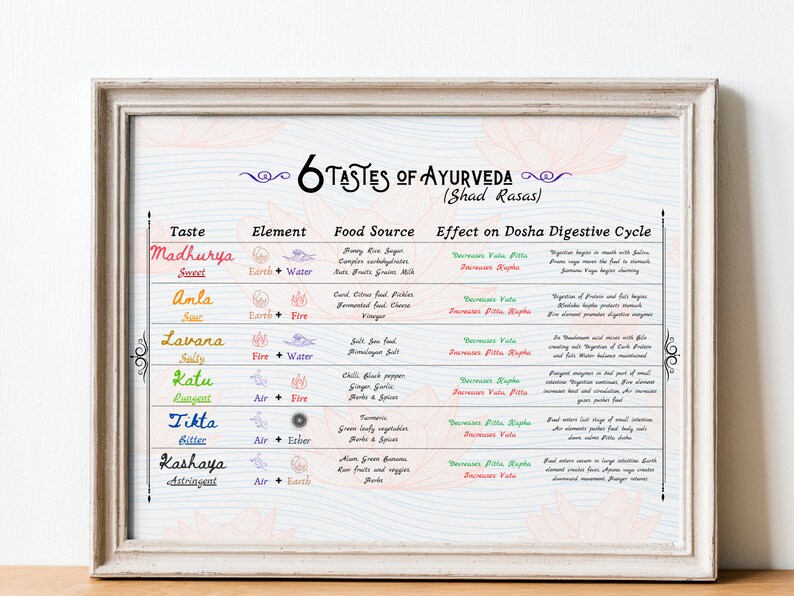 6 Tastes of Ayurveda
(Shad Rasas)
Taste Element Food Source Effect on Dosha Digestive Cycle
Madhurya
Sweet
Earth + Water
Honey, Rice, Sugar,
Complex carbohydrates,
Nuts, Fruits, Grains, Milk
Decreases Vata, Pitta
Increases Kapha
Digestion begins in mouth with Saliva.
Prana vayu moves the food to stomach.
Samana Vayu begins churning
Amla
Sour
Earth + Fire
Curd, Citrus food, Pickles,
Fermented food, Cheese,
Vinegar
Decreases Vata
Increases Pitta, Kapha
Digestion of Protein and fats begins.
Kledaka kapha protects stomach.
Fire element promotes digestive enzymes
Lavana
Salty
Fire + Water
Salt, Sea food,
Himalayan Salt
Decreases Vata
Increases Pitta, Kapha
In Duodenum acid mixes with Bile
creating salt. Digestion of Carb, Protein
and fats. Water balance maintained
Katu
Pungent
Air + Fire
Chilli, Black pepper,
Ginger, Garlic,
Herbs & Spices
Decreases Kapha
Increases Pitta, Vata
Pungent enzymes in 2nd part of small
intestine. Digestion continues, Fire element
increases heat and circulation, Air increases
gases, pushes food
Tikta
Bitter
Air + Ether
Turmeric,
Green leafy vegetables,
Herbs & Spices
Decreases Pitta, Kapha
Increases Vata
Food enters last stage of small intestine,
Air elements pushes food, body cools
down, calms Pitta dosha
Kashaya
Astringent
Air + Earth
Alum, Green Banana,
Raw fruits and veggies,
Herbs
Decreases Pitta, Kapha
Increases Vata
Food enters cecum in large intestine. Earth
element creates feces, Apana vayu creates
downward movement, Hunger returns